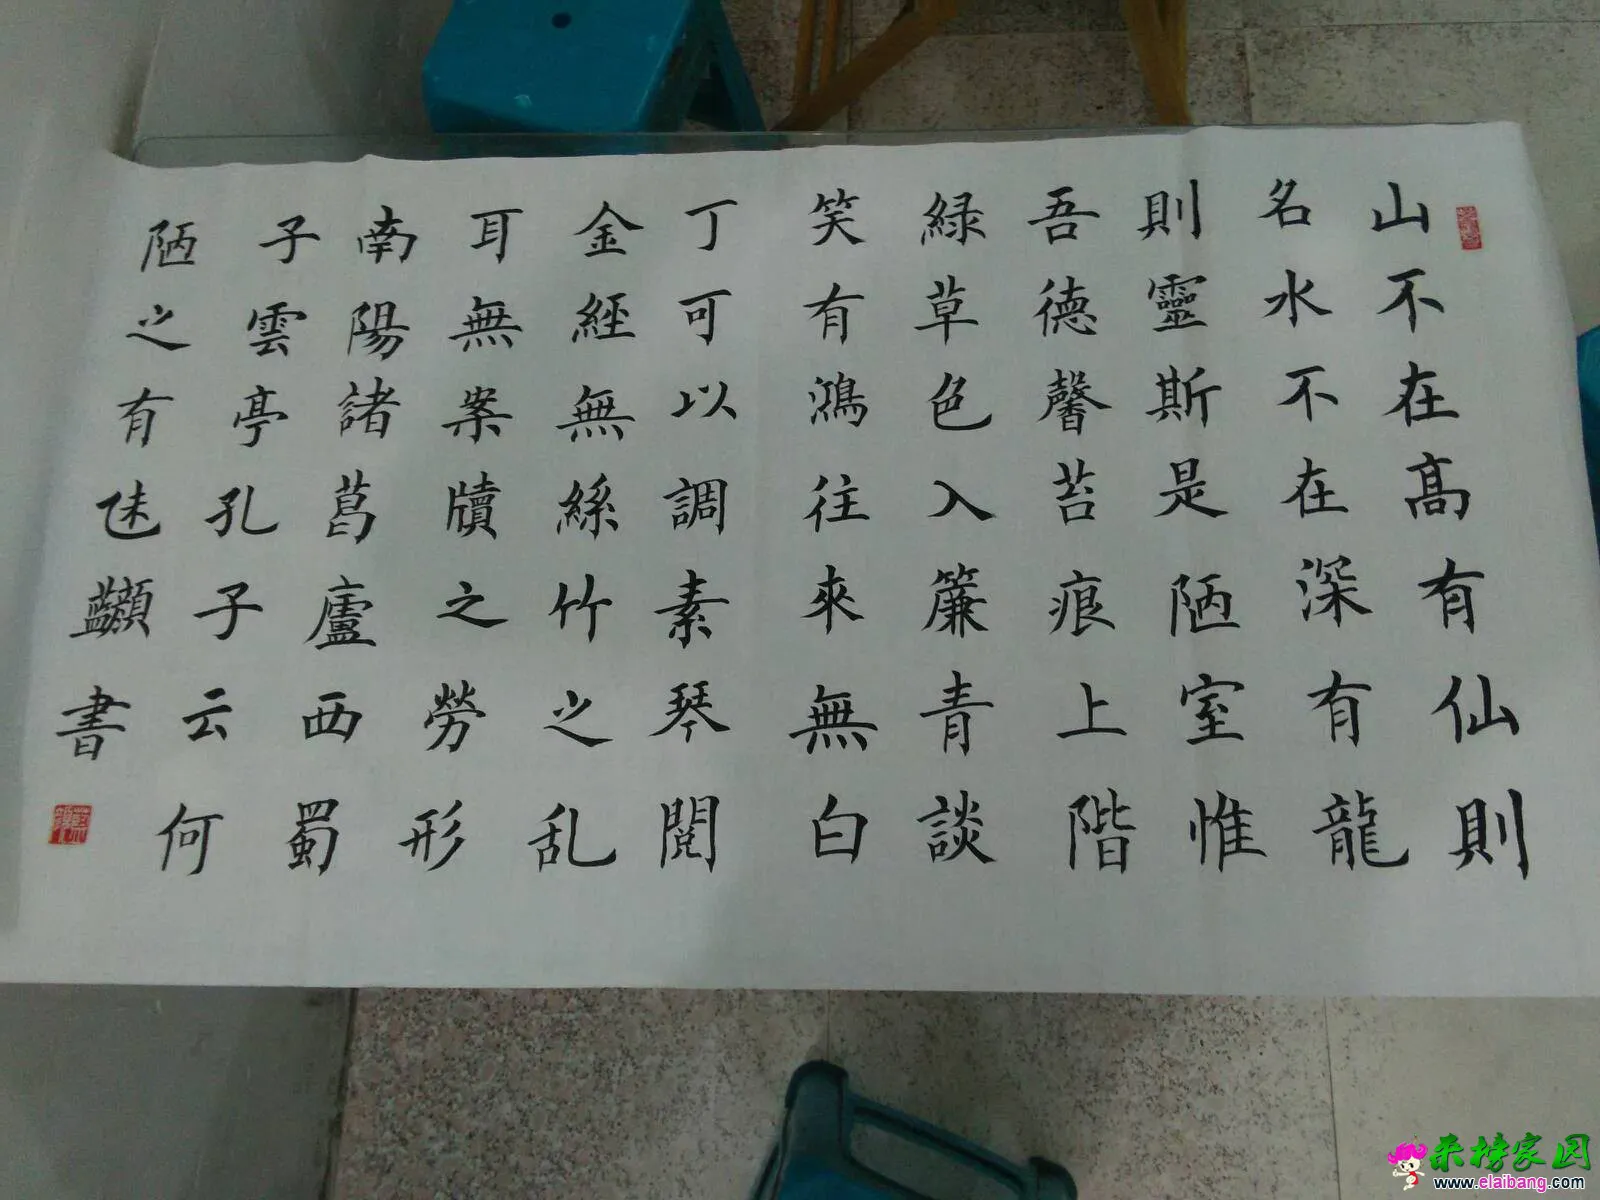 山不在髙有仙則
名水不在深有龍
則靈斯是陋室惟
吾德馨苔痕上階
緑草色入簾青談
笑有鴻往來無白
丁可以調素琴閱
金經無絲竹之乱
耳無案牘之勞形
南陽諸葛廬西蜀
子雲亭孔子云何
陋之有書
来榜家园
www.elaibang.com